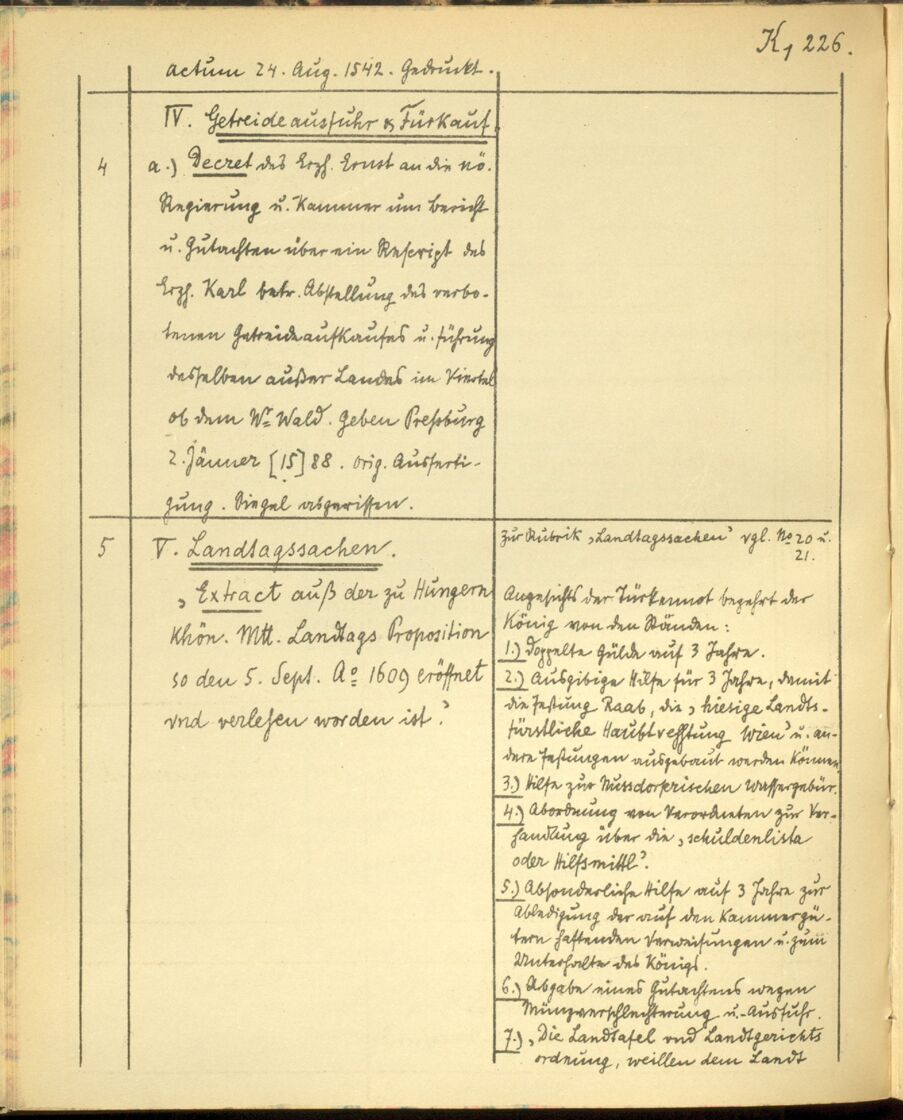 K, 226.
actum 24. Aug. 1542. Gedruckt.
IV. Getreideausfuhr & Fürkauf.
4
a.) Decret des Erzh. Ernst an die nö.
Regierung u. Kammer um Bericht
u. Gutachten über ein Rescript des
Erzh. Karl betr. Abstellung des verbo-
tenen Getreideaufkaufes u. führung
desselben außer Landes im Viertel
ob dem Wr Wald. Geben Pressburg
2. Jänner [15]88. Orig. Ausferti-
gung. Siegel abgerissen.
5
V. Landtagssachen.
„Extract auß der zu Hungern
Khön. Mtt. Landtags Proposition
so den 5. Sept. Ao 1609 eröffnet
vnd verlesen worden ist."
Zur Rubrik „Landtagssachen" vgl. No 20 u.
21.
Angesichts der Türkennot begehrt der
König von den Ständen:
1.) Doppelte Gülde auf 3 Jahre.
2.) Ausgibige Hilfe für 3 Jahre, damit
die Festung Raab, die „hiesige Landts-
fürstliche Haubtvesstung Wien" u. an-
dere Festungen ausgebaut werden können.
3.) Hilfe zur Nussdorferischen Wassergebür.
4.) Abordnung von Verordneten zur Ver-
handlung über die „schuldenlista
oder Hilfsmittl".
5.) Absonderliche Hilfe auf 3 Jahre zur
Abledigung der auf den Kammergü-
tern haftenden Verweisungen u. zum
Unterhalte des Königs.
6.) Abgabe eines Gutachtens wegen
Münzverschlechterung u.-Ausfuhr.
7.) „Die Landtafel vnd Landtgerichts
ordnung, weillen dem Landt